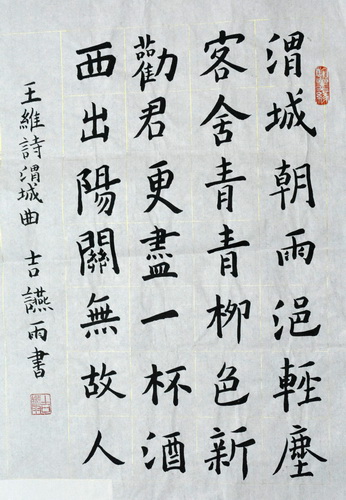 渭城朝雨浥輕塵
客舍青青柳色新
勸君更盡一杯酒
西出陽關無故人
王維詩渭城曲 吉讌雨書